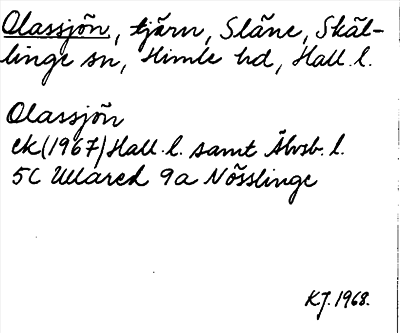 Olassjön, tjärn, Släne, Skäl-
linge sn, Himle hd, Hall. l.
Olassjön
ek(1967) Hall. l. samt Älvsb. l.
5C Ullared 9a Nösslinge
KJ. 1968.